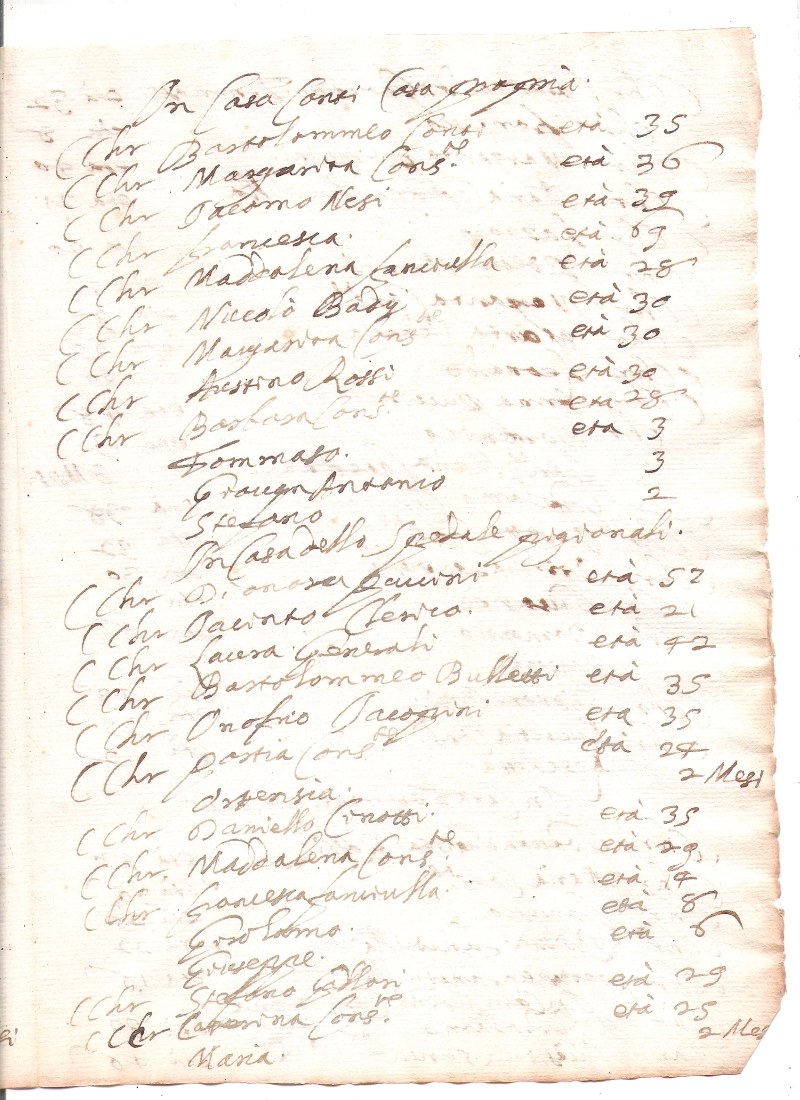 In Casa Conti Casa propria.
C Chr Bartolommeo Conti età 35
C Chr Margarita Cons.te età 36
C Chr Iacomo Nesi età 39
C Chr francesca. età 69
C Chr Maddalena fanciulla età 28
C Chr Niccolò Bady età 30
C Chr Margarita Conste età 30
C Chr Austino Rossi età 30
C Chr Barbara Cons.te eta 28
Tommaso. eta 3
Giovann Antonio 3
Stefano 2
In Casa dello Spedale pigionali.
C Chr Dionora puccini età 52
C Chr Iacinto Clerico. età 21
C Chr Laura Generali età 42
C Chr Bartolommeo Bulletti età 35
C Chr Onofrio Iacopini eta 35
C Chr portia Conste età 24
Ortensia. 2 Mesi
C Chr Daniello Cinotti. età 35
C Chr Maddalena Cons.te età 29
C Chr francesca fanciulla età 14
Girolamo. età 8
Giuseppe. età 6
C Chr Stefano Gallori età 29
C Chr Caterina Cons.te età 25
Maria. 2 Mes